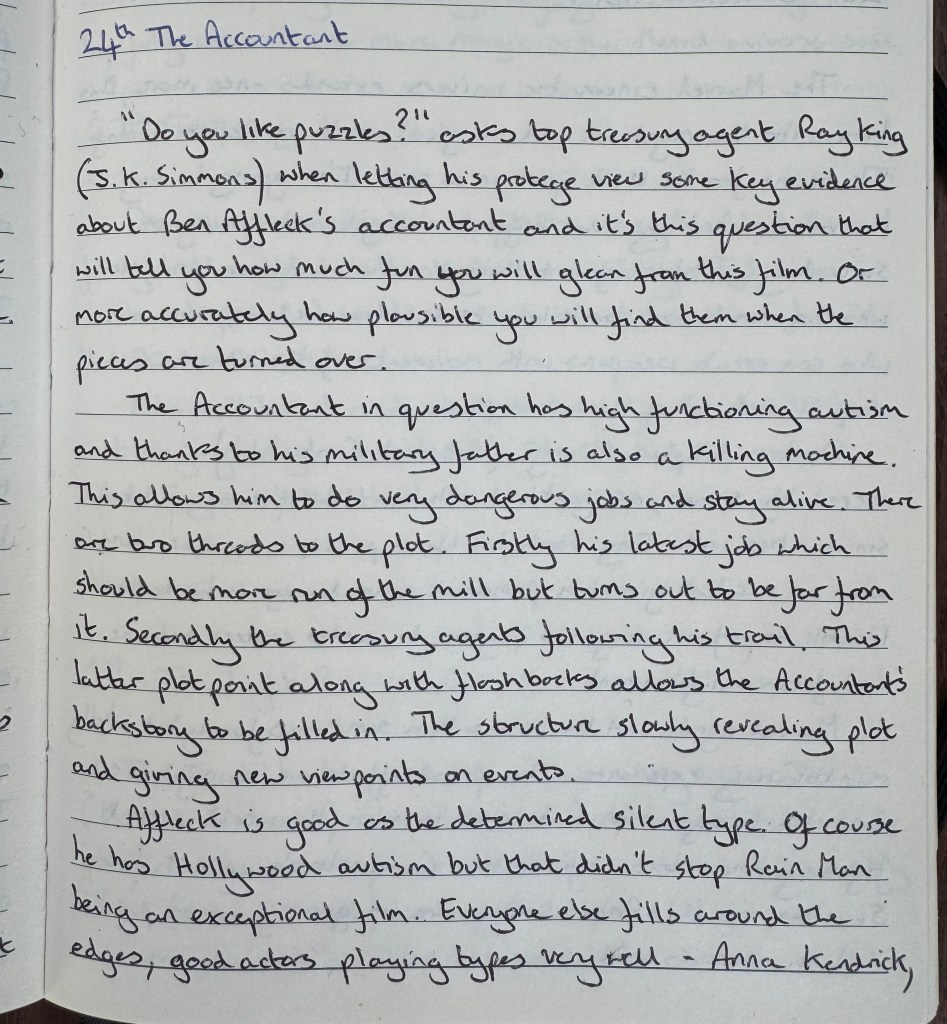 24th The Accountant
"Do you like puzzles?" asks top treasury agent Ray King
(J.K. Simmons) when letting his protege view some key evidence
about Ben Affleck's accountant and it's this question that
will tell you how much fun you will glean from this film. Or
more accurately how plausible you will find them when the
pieces are turned over.
The Accountant in question has high functioning autism
and thanks to his military father is also a killing machine.
This allows him to do very dangerous jobs and stay alive. There
are two threads to the plot. Firstly his latest job which
should be more run of the mill but turns out to be far from
it. Secondly the treasury agents following his trail. This
latter plot point along with flashbacks allows the Accountant's
backstory to be filled in. The structure slowly revealing plot
and giving new viewpoints on events.
Affleck is good as the determined silent type. Of course
he has Hollywood autism but that didn't stop Rain Man
being an exceptional film. Everyone else fills around the
edges, good actors playing types very well - Anna Kendrick,